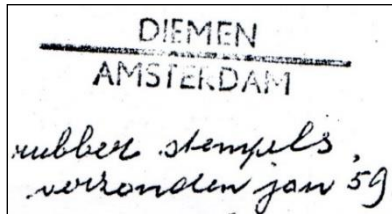 DIEMEN
AMSTERDAM
rubber stempels,
verzonden jan 59